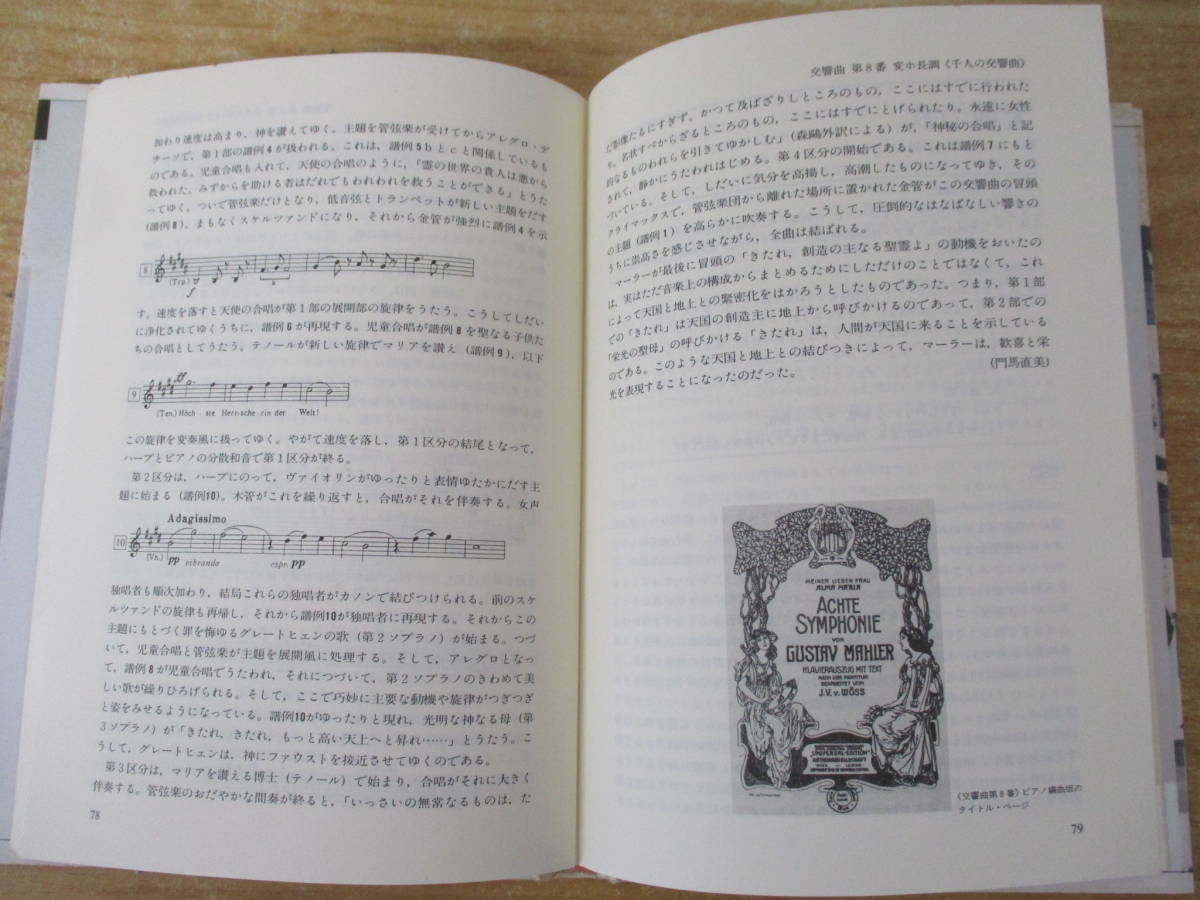 加わり速度は高まり,神を讃えてゆく。主題を管弦楽が受けてからアレグロ・デ
チーソで,第1部の譜例4が扱われる。これは,譜例5bとcと関係しているも
のである。児童合唱も入れて,天使の合唱のように,「霊の世界の貴人は悪から
救われた,みずからを助ける者はだれでもわれわれを救うことができる」とうた
ってゆく。ついで管弦楽だけとなり,低音弦とトランペットが新しい主題をだす
(譜例8)。まもなくスケルツァンドになり,それから金管が強烈に譜例4を示
8
(Trp.)
f
3
す。速度を落すと天使の合唱が第1部の展開部の旋律をうたう。こうしてしだい
に浄化されてゆくうちに,譜例6が再現する。児童合唱が譜例8を聖なる子供た
ちの合唱としてうたう。テノールが新しい旋律でマリアを讃え(譜例9),以下
9
ff
(Ten.) Höch - ste Herr-sche-rin der Welt!
この旋律を変奏風に扱ってゆく。やがて速度を落し,第1区分の結尾となって,
ハープとピアノの分散和音で第1区分が終る。
第2区分は,ハープにのって,ヴァイオリンがゆったりと表情ゆたかにだす主
題に始まる(譜例10)。木管がこれを繰り返すと,合唱がそれを伴奏する。女声
Adagissimo
10
(Vn.) pp vibrando espr. pp
独唱者も順次加わり,結局これらの独唱者がカノンで結びつけられる。前のスケ
ルツァンドの旋律も再帰し,それから譜例10が独唱者に再現する。それからこの
主題にもとづく罪を悔ゆるグレートヒェンの歌(第2ソプラノ)が始まる。つづ
いて,児童合唱と管弦楽が主題を展開風に処理する。そして,アレグロとなっ
て,譜例8が児童合唱でうたわれ,それにつづいて,第2ソプラノのきわめて美
しい歌が繰りひろげられる。そして,ここで巧妙に主要な動機や旋律がつぎつぎ
と姿をみせるようになっている。譜例10がゆったりと現れ,光明な神なる母(第
3ソプラノ)が「きたれ,きたれ,もっと高い天上へと昇れ……」とうたう。こ
うして,グレートヒェンは,神にファウストを接近させてゆくのである。
第3区分は,マリアを讃える博士(テノール)で始まり,合唱がそれに大きく
伴奏する。管弦楽のおだやかな間奏が終ると,「いっさいの無常なるものは,た
78
交響曲 第8番 変ホ長調《千人の交響曲》
だ影像たるにすぎず。かつて及ばざりしところのもの,ここにはすでに行われた
り。名状すべからざるところのもの,ここにはすでにとげられたり。永遠に女性
的なるものわれらを引きてゆかしむ」(森鷗外訳による)が,「神秘の合唱」と記
されて,静かにうたわれはじめる。第4区分の開始である。これは譜例7にもと
づいている。そして,しだいに気分を高揚し,高潮したものになってゆき,その
クライマックスで,管弦楽団から離れた場所に置かれた金管がこの交響曲の冒頭
の主題(譜例1)を高らかに吹奏する。こうして,圧倒的なはなばなしい響きの
うちに崇高さを感じさせながら,全曲は結ばれる。
マーラーが最後に冒頭の「きたれ,創造の主なる聖霊よ」の動機をおいたの
は,実はただ音楽上の構成からまとめるためにしただけのことではなくて,これ
によって天国と地上との緊密化をはかろうとしたものであった。つまり,第1部
での「きたれ」は天国の創造主に地上から呼びかけるのであって,第2部での
「栄光の聖母」の呼びかける「きたれ」は,人間が天国に来ることを示している
のである。このような天国と地上との結びつきによって,マーラーは,歓喜と栄
光を表現することになったのだった。
(門馬直美)
MEINER LIEBEN FRAU
ALMA MARIA
ACHTE
SYMPHONIE
VON
GUSTAV MAHLER
KLAVIERAUSZUG MIT TEXT
NACH DER PARTITUR
BEARBEITET VON
J.V. v. WÖSS
"UNIVERSAL-EDITION"
AKTIENGESELLSCHAFT
WIEN — LEIPZIG
《交響曲第8番》ピアノ編曲版の
タイトル・ページ
79